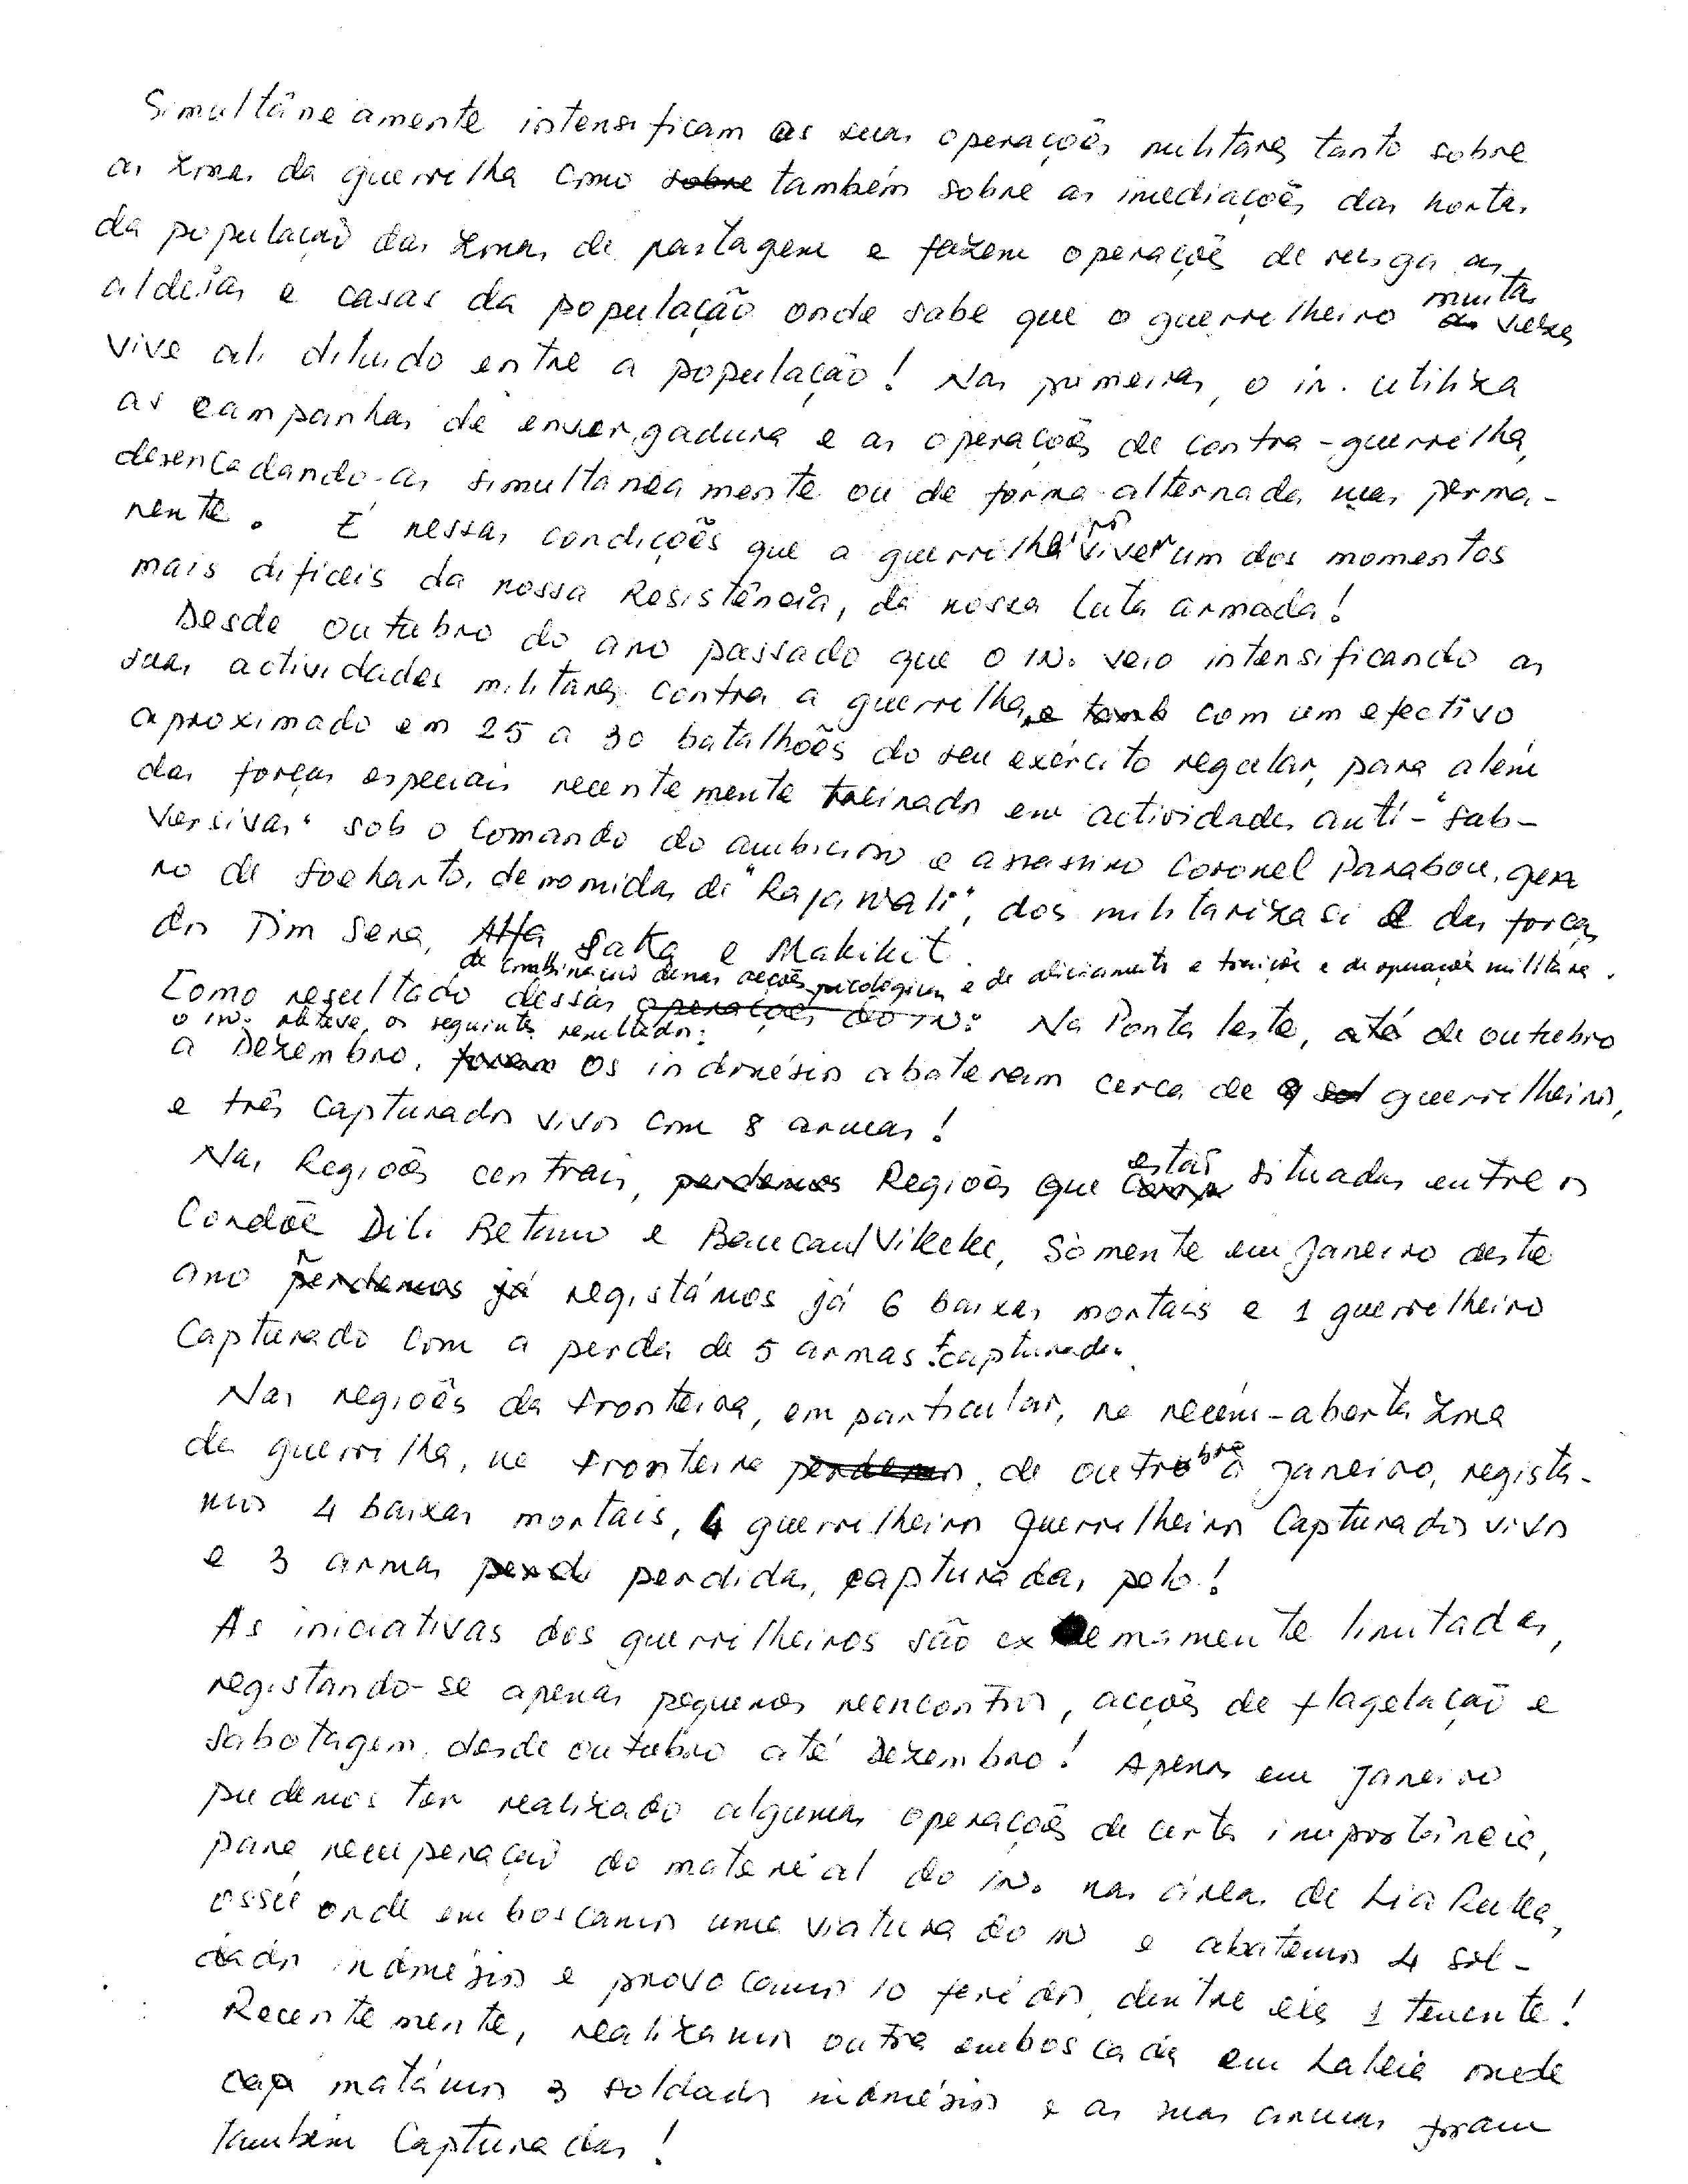 Simultâneamente intensificam as suas operações militares tanto sobre
as zonas da guerrilha como sobre também sobre as imediações das hortas
da população das zonas de pastagem e fazem operações de rusga as
aldeias e casas da população onde sabe que o guerrilheiro muitas vezes
vive ali diluido entre a população! Nas primeiras, o in. utiliza
as campanhas de envergadura e as operações de contra-guerrilha,
desencadando-as simultaneamente ou de forma alternada mas perma-
nente. É nessas condições que a guerrilha viver um dos momentos
mais difíceis da nossa Resistência, da nossa luta armada!
Desde outubro do ano passado que o IN. veio intensificando as
suas actividades militares contra a guerrilha, e tamb com um efectivo
aproximado em 25 a 30 batalhões do seu exército regular, para além
das forças especiais recentemente treinados em actividades anti-"sub-
versivas" sob o comando do ambicioso e assassino Coronel Parabou, gen
ro de Soeharto, denomidas de "Rajawali", dos militarizasi e das forças
dos Tim Sera, Alfa, Saka e Makikit.
de combinação dessas acções psicológicas e de aliciamento e traição e de operações militares.
Como resultado dessas operações do IN: Na Ponta leste, até de outubro
o IN. obteve, os seguintes resultados:
a Dezembro, foram os indonésios abateram cerca de 9 guerrilheiros,
e três capturados vivos com 8 armas!
Nas Regiões centrais, perdemos Regiões que estão situadas entre os
Cordõe Dili Betano e Baucau/Vikeke, sòmente em janeiro deste
ano perdemos já registámos já 6 baixas mortais e 1 guerrilheiro
capturado com a perda de 5 armas capturadas.
Nas regiões da fronteira, em particular, na recém-aberta zona
da guerrilha, na fronteira perdemos, de outrobro a janeiro, regista-
mos 4 baixas mortais, 4 guerrilheiros guerrilheiros capturados vivos
e 3 armas perdi perdidas, capturadas, pelo!
As iniciativas dos guerrilheiros são extremamente limitadas,
registando-se apenas pequenos reencontros, acções de flagelação e
sabotagem, desde outubro até Dezembro! Apenas em janeiro
pudemos ter realizado algumas operações de certa importância,
para recuperação do material do IN. nas áreas de Lia Ruka,
ossu onde emboscamos uma viatura do IN e abatemos 4 sol-
dados indonésios e provocamos 10 feridos, dentre eles 1 tenente!
Recentemente, realizamos outra emboscada em Laleia onde
matámos 3 soldados indonésios e as suas armas foram
também capturadas!